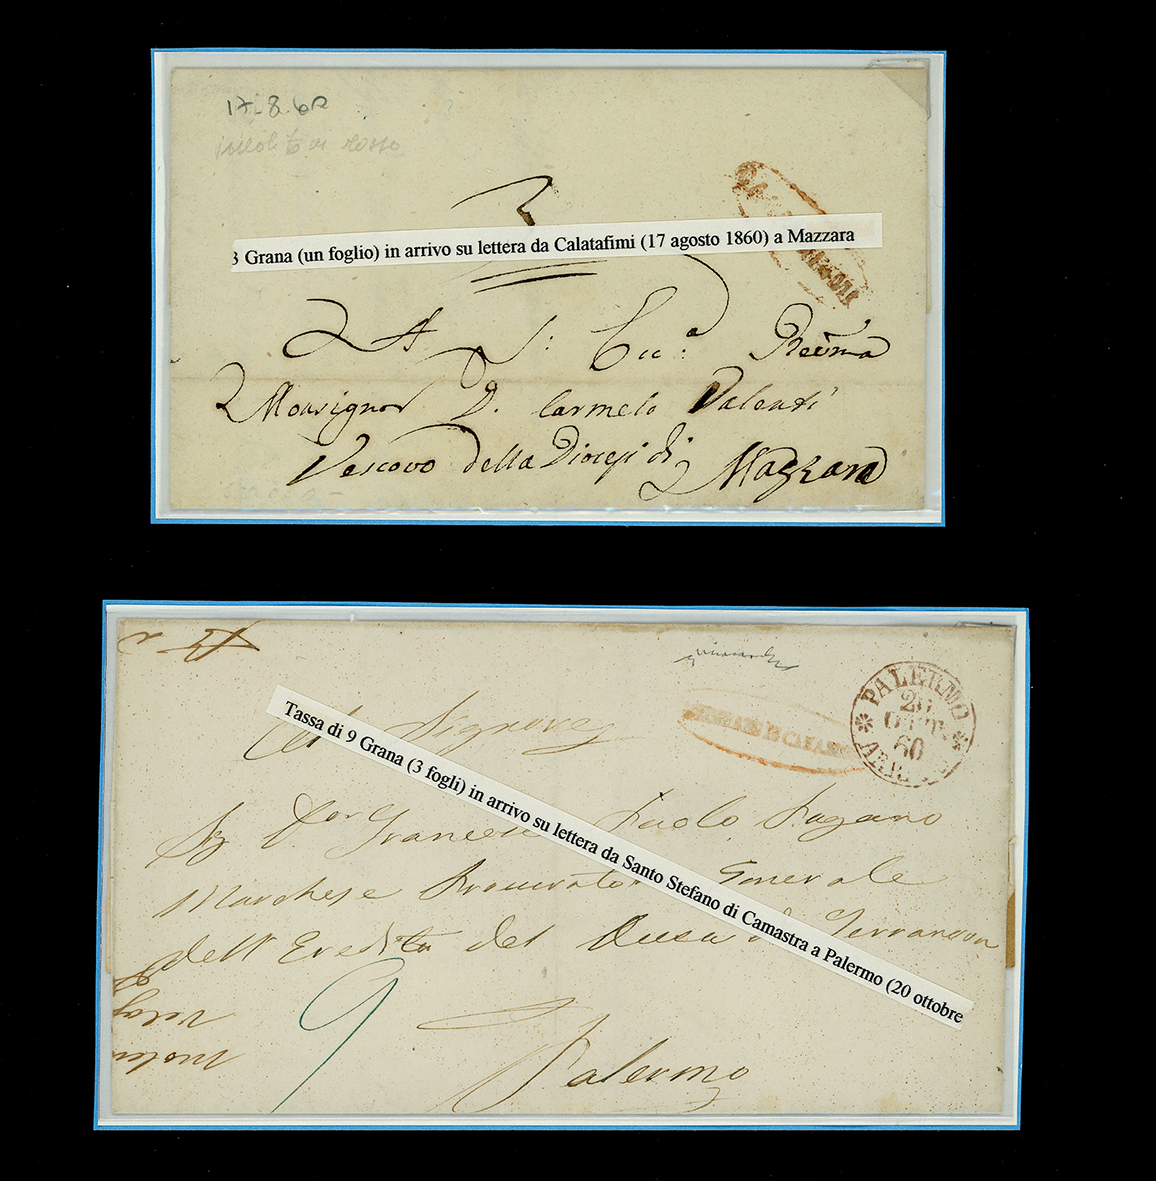 17-8-60
in rosso
3
3 Grana (un foglio) in arrivo su lettera da Calatafimi (17 agosto 1860) a Mazzara
A S: Ecc:a Reṽma
Monsignor D. Carmelo Valenti
Vescovo della Diocesi di Mazzara
PALERMO
20
OTT.
60
Tassa di 9 Grana (3 fogli) in arrivo su lettera da Santo Stefano di Camastra a Palermo (20 ottobre
Al Signore
Paolo Pagano
Marchese Procurator Generale
dell'Eredità del Duca Terranova
9
Palermo